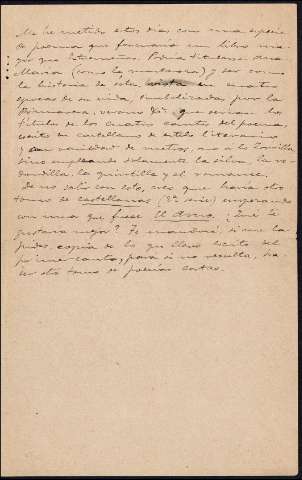 Me he metido estos días con una especie
de poema que formaría un libro ma-
yor que Extremeñas. Podría titularse Ana
María (como la muchacha) y ser como
la historia de ella vista en cuatro
épocas de su vida, simbolizadas por la
Primavera, verano &a, que serían los
títulos de los cuatro cantos del poema,
escrito en castellano de estilo literario
y con variedad de metros, no a lo Zorrilla
sino empleando solamente la silva, la re-
dondilla, la quintilla y el romance.
De no salir con esto, creo que haría otro
tomo de castellanas (2ª serie) empezando
con una que fuese El Amo. ¿Qué te
gustaría mejor? Te mandaré, si me la
pides, copia de lo que llevo escrito del
primer canto, para si no resulta, ha-
cer otro tomo de poesías cortas.